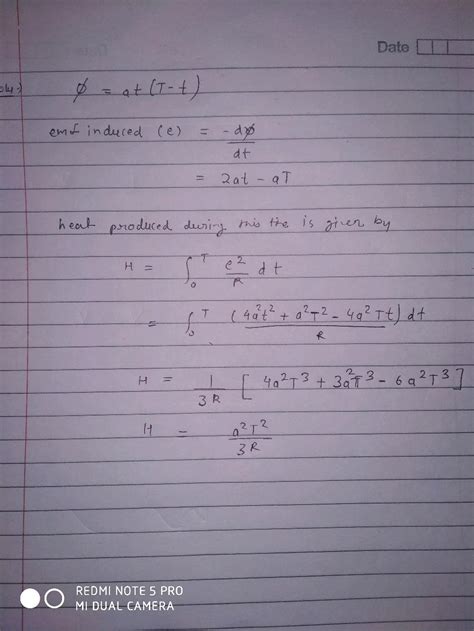 Date
Soln:)
ϕ = at (T-t)
emf induced (e) = -dϕ/dt
= 2at - aT
heat produced during this the is given by
H = ∫₀ᵀ e²/R dt
= ∫₀ᵀ (4a²t² + a²T² - 4a²Tt) dt/R
H = 1/3R [4a²T³ + 3a²T³ - 6a²T³]
H = a²T²/3R
REDMI NOTE 5 PRO
MI DUAL CAMERA